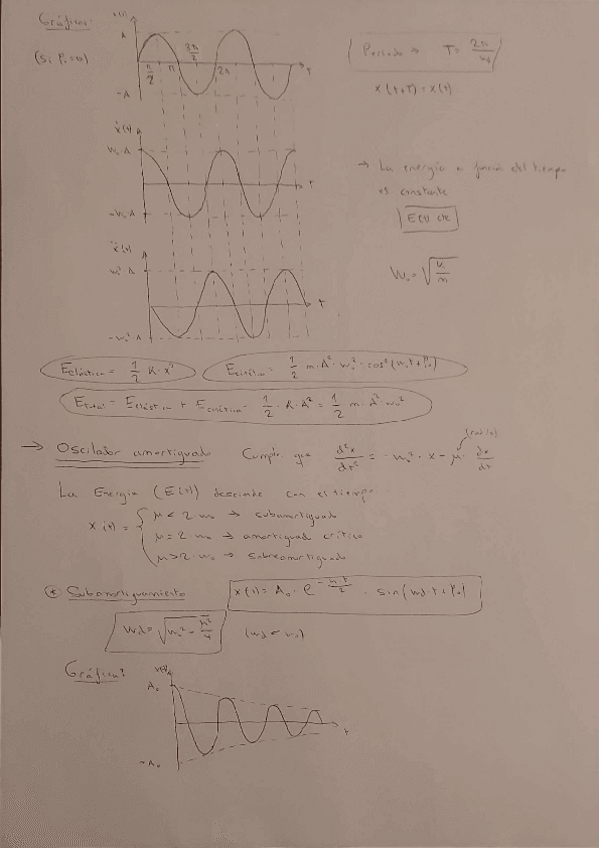 Gráficas:
(Si φ₀=0)
x(t)
A
-A
π/2 π 3π/2 2π t
Periodo → T = 2π/w₀
x(t+T) = x(t)
ẋ(t)
w₀·A
-w₀·A
t
→ La energía en función del tiempo
es constante
E(t) cte
W₀ = √(k/m)
ẍ(t)
w₀²·A
-w₀²·A
t
Eelástica = 1/2 · K · x²
Ecinética = 1/2 m·A²·w₀²·cos²(w₀t+φ₀)
Etotal = Eelástica + Ecinética = 1/2 · K·A² = 1/2 · m·A²·w₀²
→ Oscilador amortiguado Cumple que d²x/dt² = -w₀²·x - μ· dx/dt
(rad/s)
La Energía (E(t)) desciende con el tiempo
x(t) = { μ < 2 w₀ → subamortiguado
μ = 2 w₀ → amortiguad crítico
μ > 2·w₀ → sobreamortiguado
* Subamortiguamiento x(t) = A₀ · e^(-μ·t/2) · sin(wd·t+φ₀)
Wd = √(w₀² - μ²/4) (wd < w₀)
Gráfica:
x(t)
A₀
-A₀
t